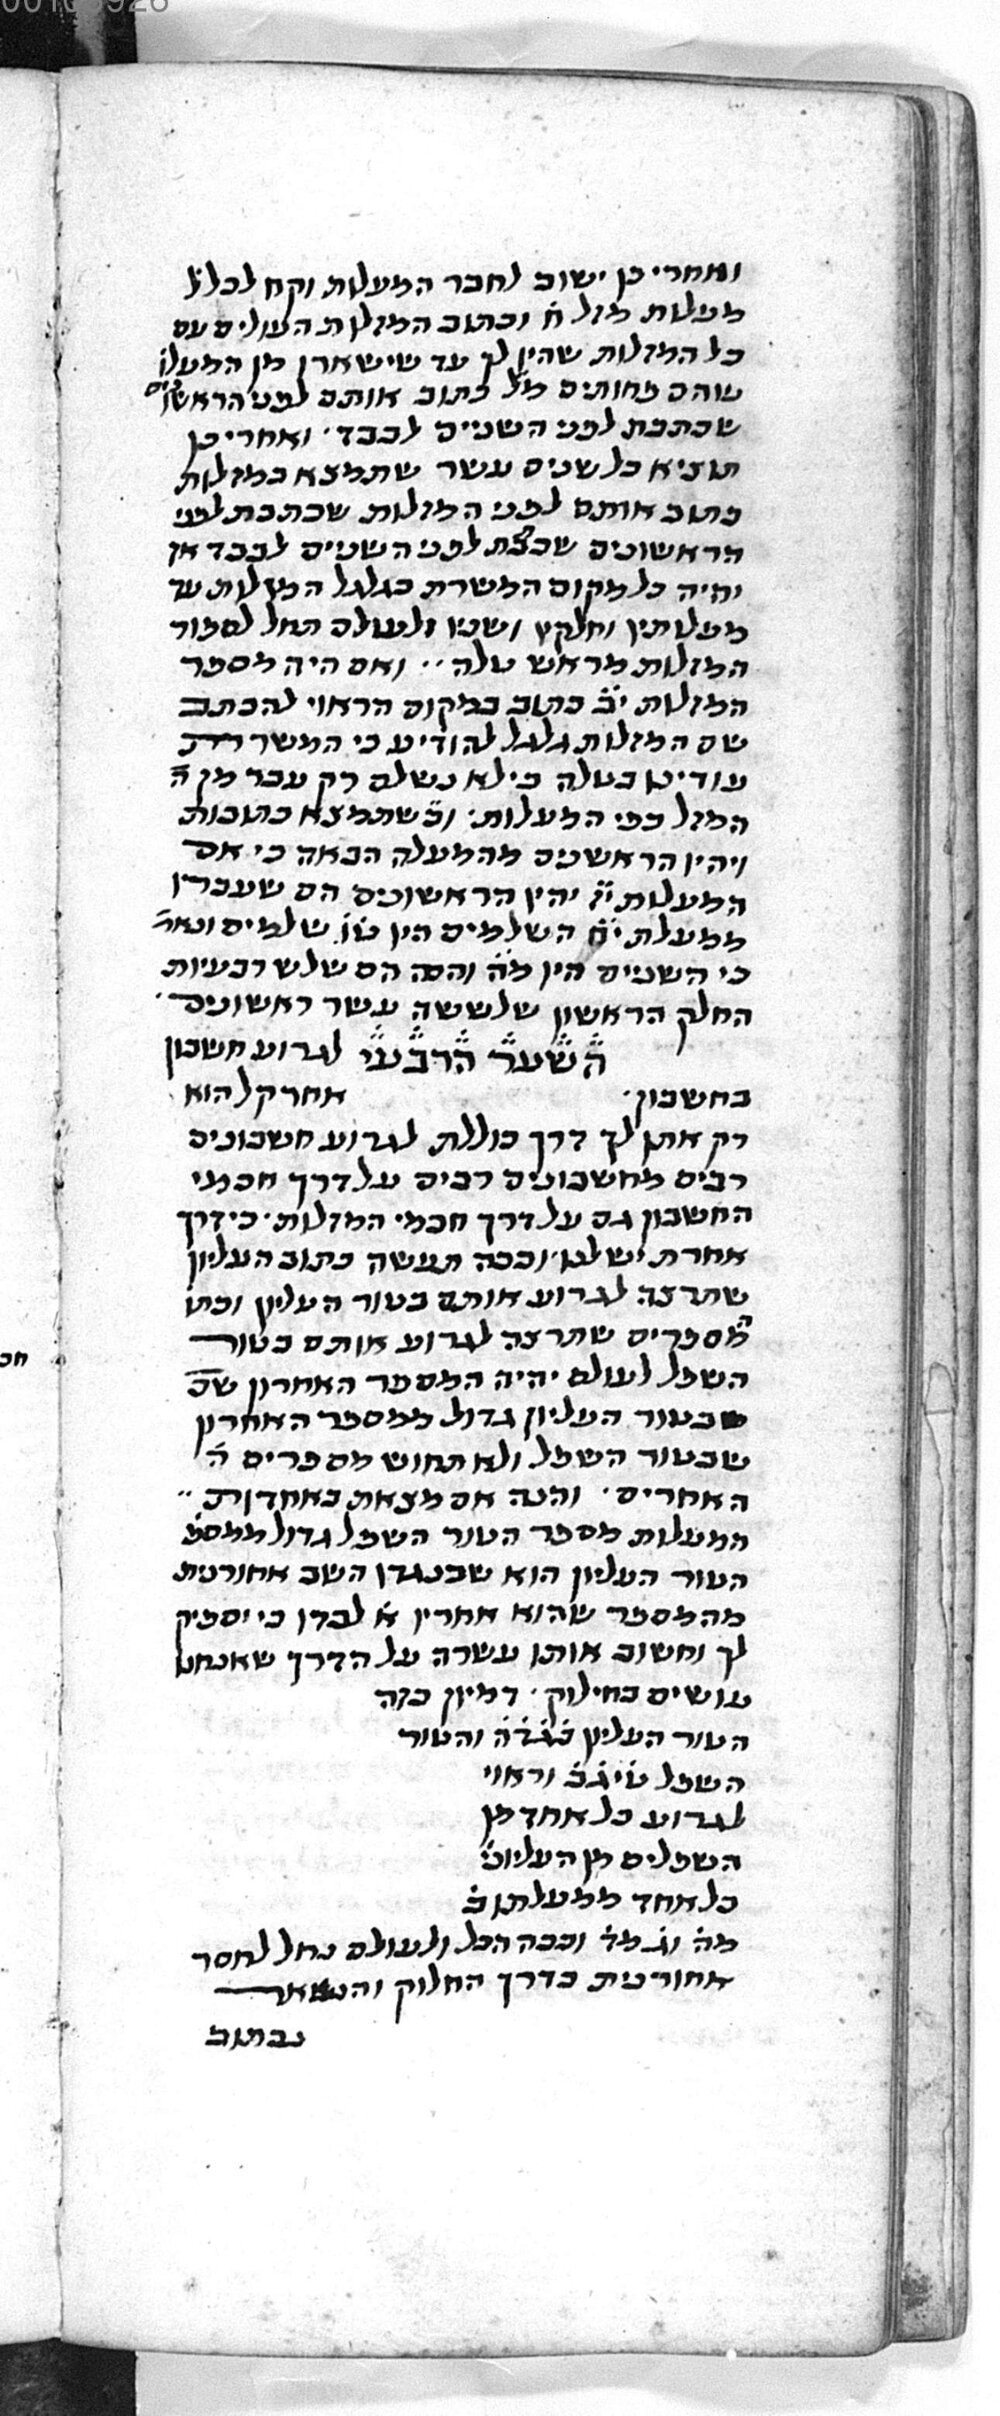 ואחרי כן ישוב לחבר המעלות וקח לכל ל
מעלות מזל א וכתוב המזלות העולים עם
כל המזלות שהיו לך עד שישארו מן המעלו
שהם פחותים מל כתוב אותם לפני הראשונים
שכתבת לפני השניים לבבד ואחרי כן
תוציא כל שנים עשר שתמצא במזלות
כתוב אותם לפני המזלות שכתבת לפני
הראשונים שכתבת לפני השניים לבבד אז
יהיה כל מקום המשרת בגלגל המזלות עד
מעלותיו וחלקיו ושניו ולעולם תחל לספור
המזלות מראש טלה ואם היה מספר
המזלות יב כתוב במקום הראוי להכתב
שם המזלות גלגל להודיע כי המשרת
עודינו בטלה כי לא נשלם רק עבר מן ה
המזל כפי המעלות וכשתמצא כתובות
ויהיו הראשנים מהמעלה הבאה כי אם
המעלות יז יהיו הראשונים הם שעברו
ממעלת יח השלמים היו טו שלמים ונאמר
כי השניים היו מה והנה הם שלש רבעיות
החלק הראשון שלששה עשר ראשונים
השער הרבעי לגרוע חשבון
בחשבון אחר קל הוא
רק אתן לך דרך כוללת לגרוע חשבונים
רבים מחשבונים רבים על דרך חכמי
החשבון גם על דרך חכמי המזלות כי דרך
אחרת יש לנו וככה תעשה כתוב העליון
שתרצה לגרוע אותם בטור העליון וכתו
המספרים שתרצה לגרוע אותם בטור
השפל לעולם יהיה המספר האחרון שב
שבטור העליון גדול ממספר האחרון
שבטור השפל ולא תחוש מספרים ה
האחרים והנה אם מצאת באחדות
המעלות מספר הטור השפל גדול ממספ
הטור העליון הוא שכנגדו השב אחורנית
מהמספר שהוא אחריו א לבדו כי יספיק
לך וחשוב אותו עשרה על הדרך שאנחנו
עושים בחילוק דמיון כזה
הטור העליון בגדה והטור
השפל טיגב וראוי
לגרוע כל אחד מן
השפלים מן העליוני
כל אחד ממעלתו ב
מה וג מד וככה הכל ולעולם נחל לחסר
אחורנית כדרך החלוק והנשאר
נכתוב
חכ